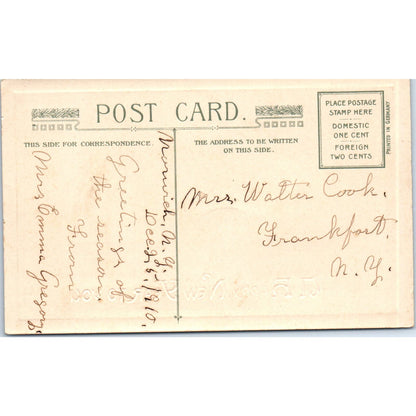 POST CARD.
THIS SIDE FOR CORRESPONDENCE.
THE ADDRESS TO BE WRITTEN
ON THIS SIDE.
PLACE POSTAGE
STAMP HERE
DOMESTIC
ONE CENT
FOREIGN
TWO CENTS
PRINTED IN GERMANY
Norwich, N.Y.
Dec 1910.
Greetings of
the season
From
Mrs Emma Gregory.
Mrs. Walter Cook.
Frankfort,
N.Y.